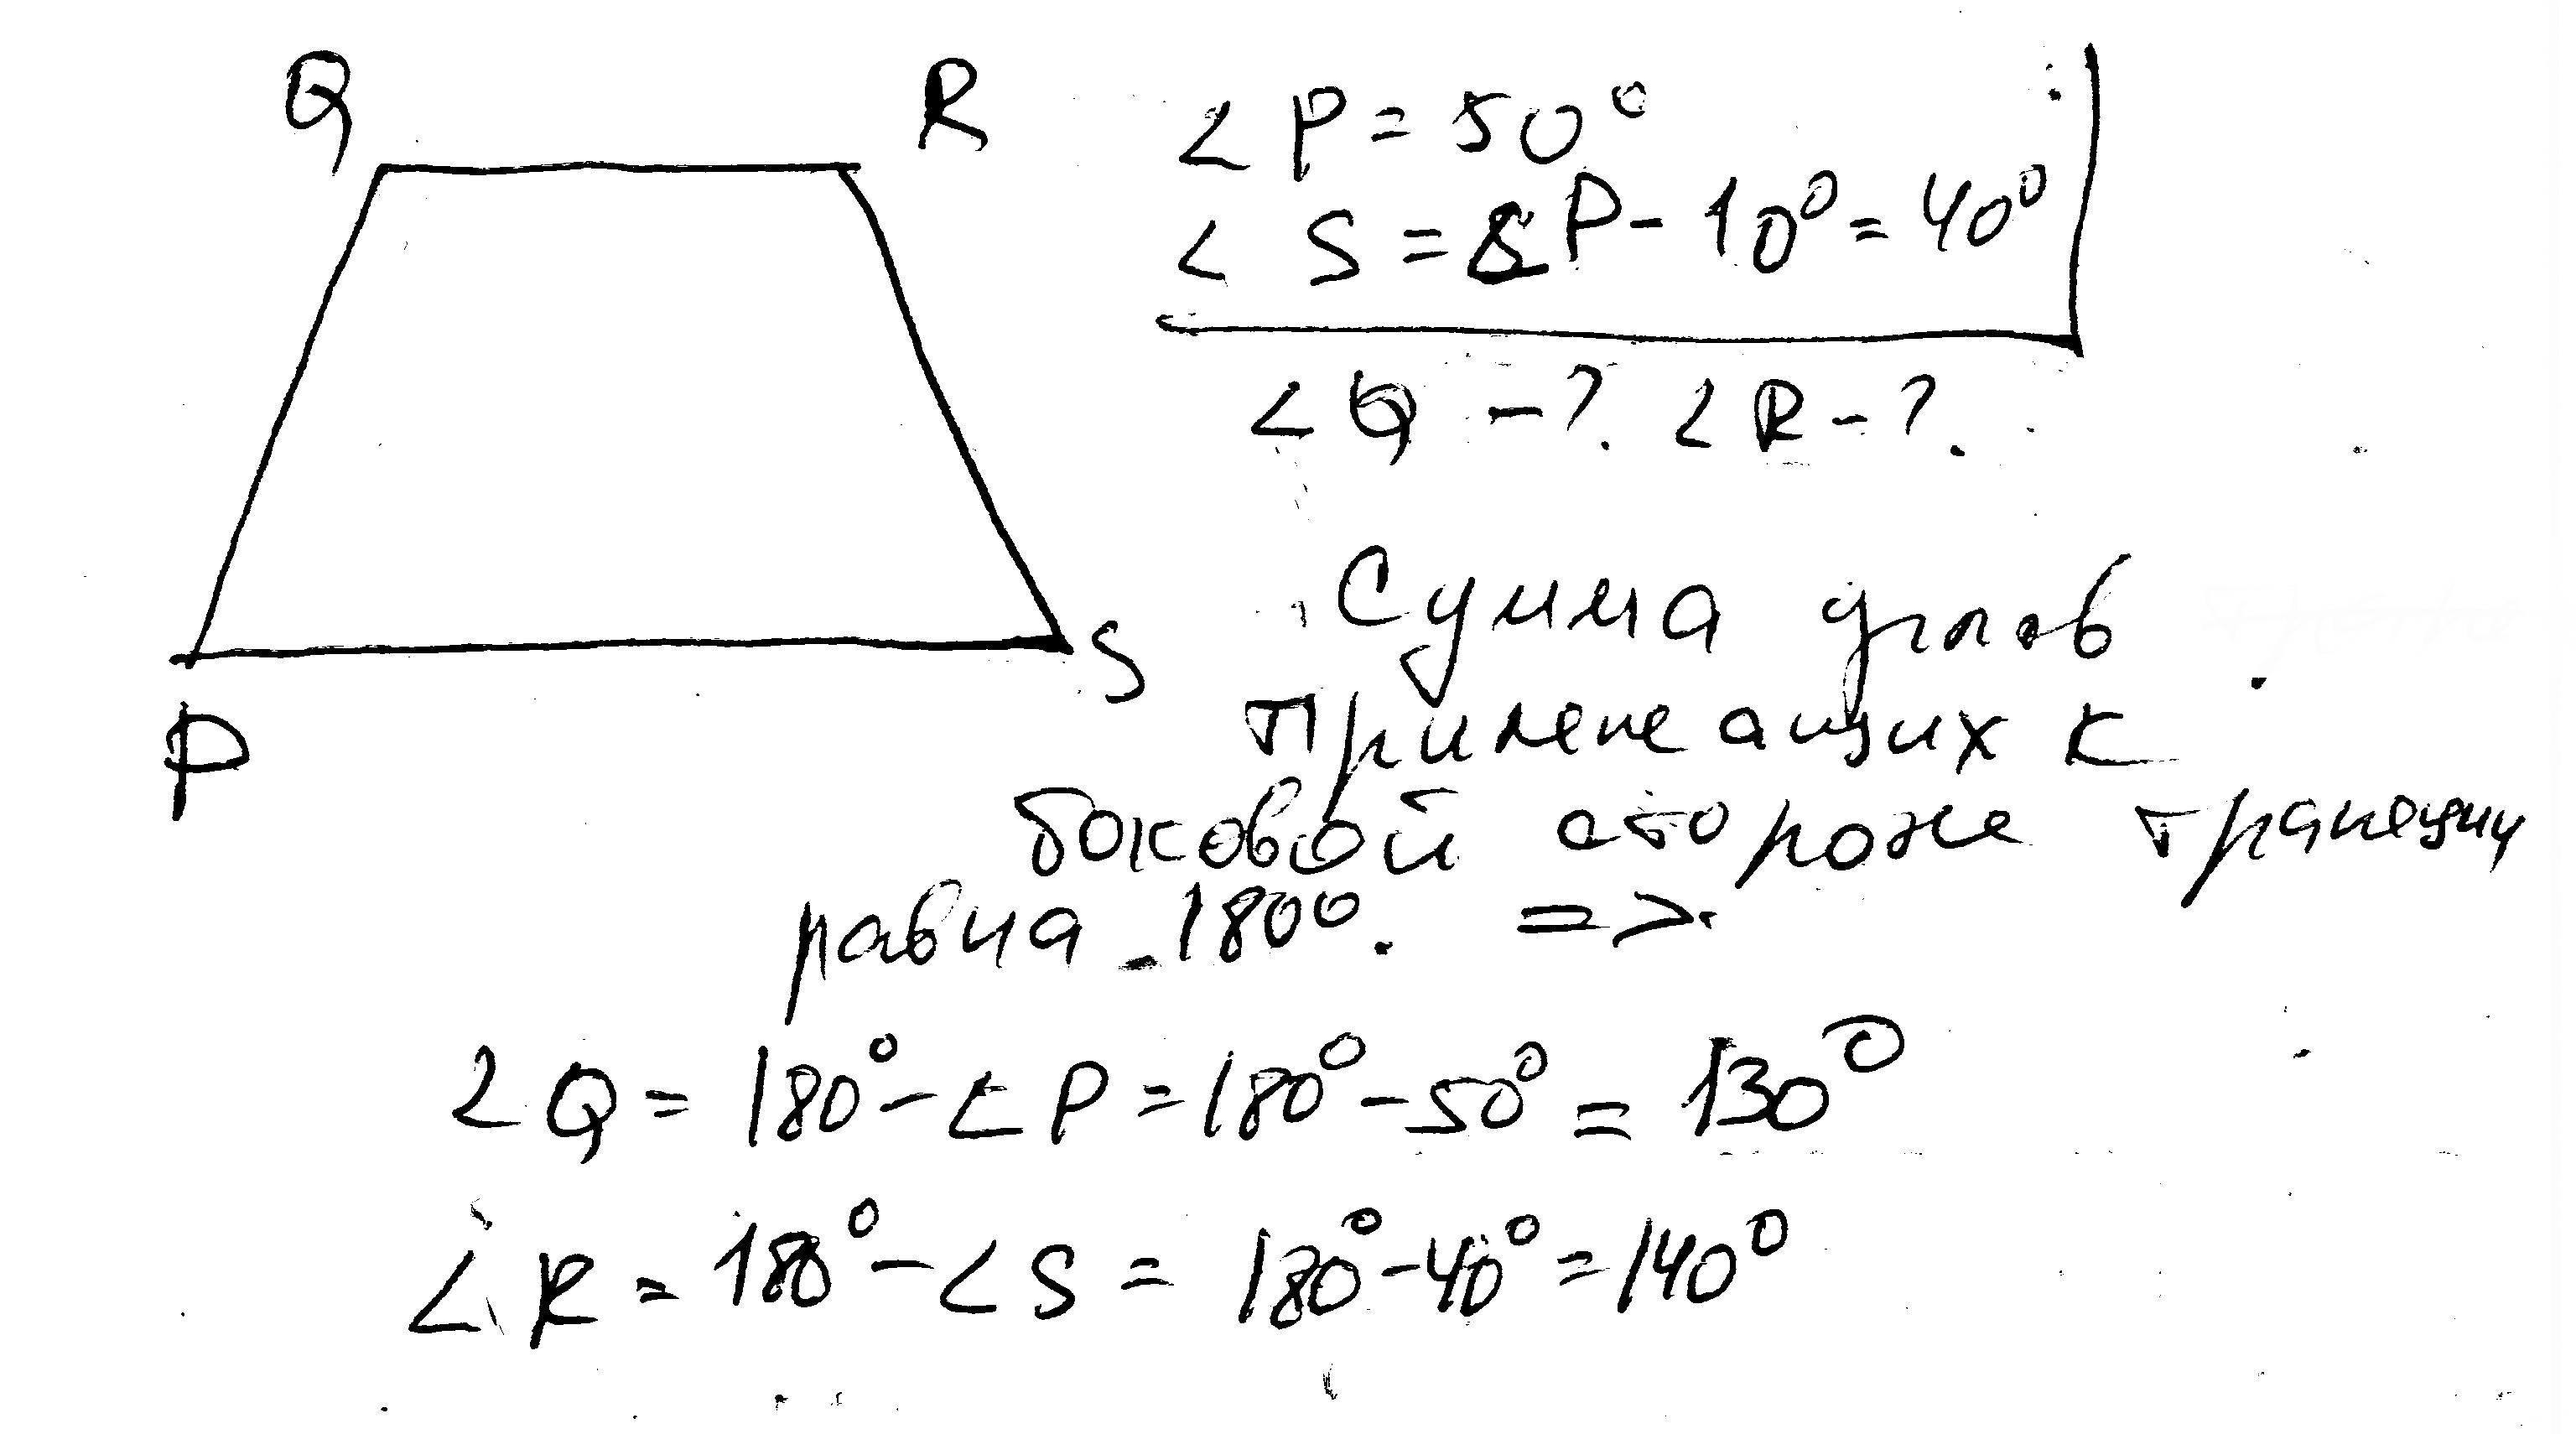 Q R
∠P = 50°
∠S = ∠P - 10° = 40°
∠Q - ?. ∠R - ?.
P S
Сумма углов
прилежащих к
боковой стороне трапеции
равна 180°. =>
∠Q = 180° - ∠P = 180° - 50° = 130°
∠R = 180° - ∠S = 180° - 40° = 140°